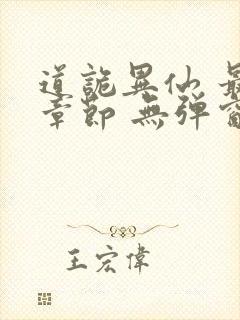 道詭異仙 最
章節 無彈窗
王宏偉